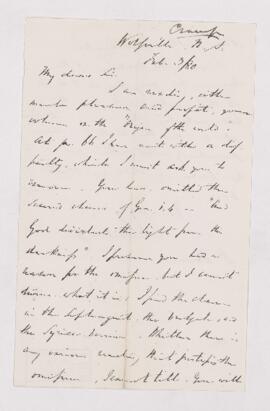 Wolfville N. S.
Feb. 3/80
My dear Sir.
I am reading, with
much pleasure and profit, your
volume on the "Origin of the world."
At p. 66 I have met with a diffi
culty, which I must ask you to
remove. You have omitted the
second clause of Gen. 1.4 — "And
God divided the light from the
darkness". I presume you had a
reason for the omission, but I cannot
divine what it is. I find the clause
in the Septuagint, the Vulgate, and
the Syriac version. Whether there is
any various reading that justifies the
omission, I cannot tell. You will